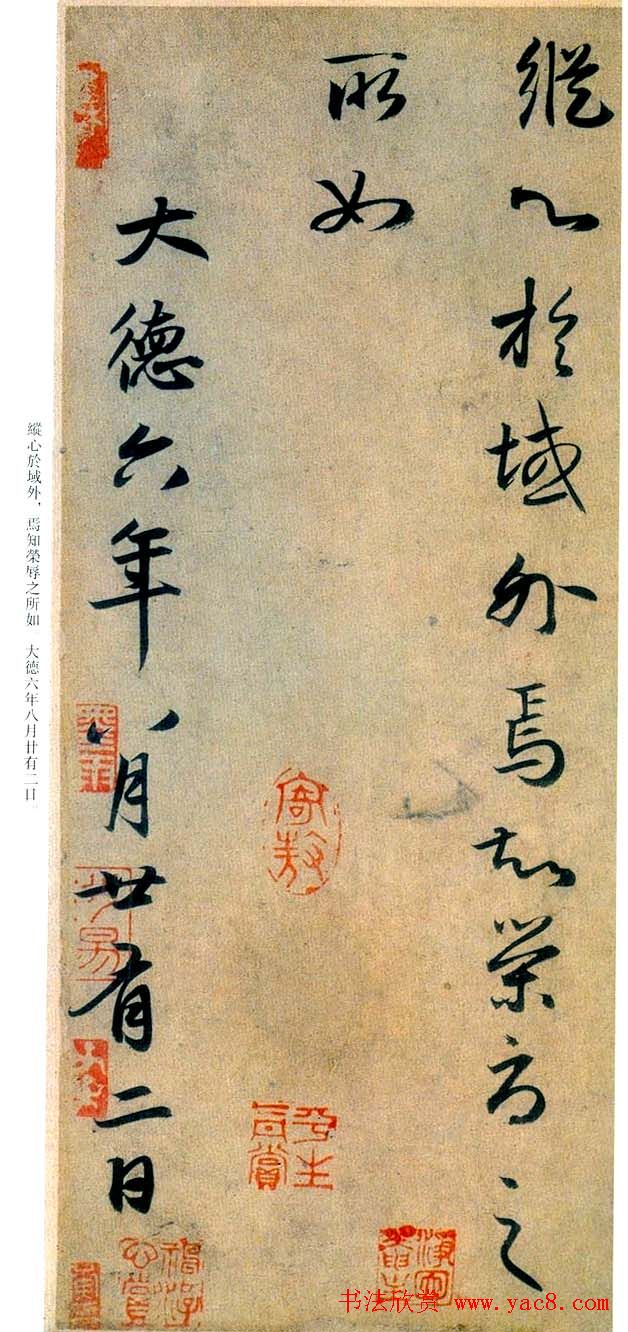 縱心於域外焉知榮辱之
所如
大德六年八月廿有二日
縱心於域外，焉知榮辱之所如　大德六年八月廿有二日
书法欣赏 www.yac8.com